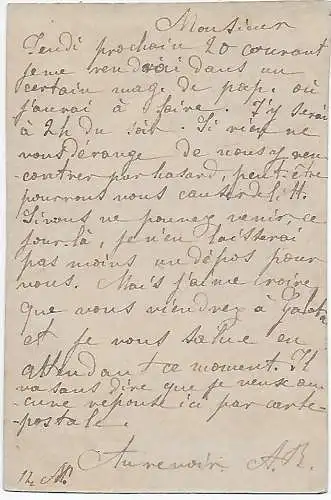 Monsieur
Jendi prochain 20 courant
je me rendrai dans un
certain mag. de pap. où
j'aurai à faire. J'y serai
à 2h du soir. Si rien ne
vous dérange de nous y ren
contrer par hasard, peut-être
pourrons nous causer de
Si vous ne pouvez venir ce
jour-là, je n'en laisserai
pas moins un dépos pour
vous. Mais j'aime croire
que vous viendrez à Galata
et je vous salue en
attendant ce moment. Il
va sans dire que je veux au-
cune réponse ici par carte-
postale.
Au revoir. A.
12